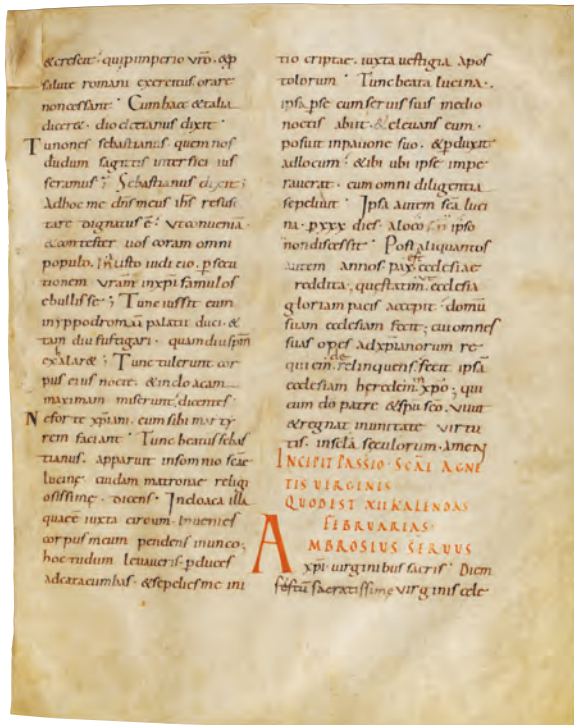 & crescit· quip imperio vrō· & p
salute romani exercitus· orare
non cessant· Cum haec & talia
dicer&· diocletianus dixit·
Tunones sebastianus· quem nos
dudum sagittis interfici ius
seramus; Sebastianus dixit;
Adhoc me dns meus ihs resusi
tare dignatus ē· Vt conueniā·
& contester uos coram omni
populo· Iniusto iudicio· p secu
tionem vram in xpi famulos
ebullisse; Tunc iussit eum
in yppodromū palatii duci· &
tam diu fustigari· quam diu spm
exalar&; Tunc tulerunt cor
pus eius nocte· & in cloacam
maximam miserunt· dicentes
Ne forte xpiani· eum sibi marty
rem faciant· Tunc beatus sebas
tianus· apparuit in somnio scae
lucine· cuidam matronae religi
osissime· dicens· In cloaca illa
quae iuxta circum· Inuenies
corpus meum pendens in unco;
hoc tu dum leuaueris· p duces
ad catacumbas· & sepelies me ini
tio criptae· iuxta uestigia apos
tolorum· Tunc beata lucina·
ipsa p se cum seruis suis medio
noctis abiit· & eleuans eum·
posuit in pauone suo· & p duxit
ad locum· & ibi ubi ipse impe
rauerat· cum omni diligentia
sepeliuit· Ipsa autem scā luci
na· p xxx dies· a loco in ipso
non discessit· Post aliquantos
autem annos pax ecclesiae
reddita· que statim ecclesia
gloriam pacis accepit· domū
suam ecclesiam fecit; cui omnes
suas opes ad xpianorum re
quiem relinquens· fecit ipsā
ecclesiam heredem xpo; qui
cum do patre & spu sco· viuit
& regnat in unitate virtu
tis· in scla seculorum· Amen
INCIPIT PASSIO· SCAE AGNE
TIS VIRGINIS
QUOD EST XII KALENDAS
FEBRUARIAS·
AMBROSIUS SERUUS
xpi uirginibus sacris· Diem
festū sacratissime virginis cele